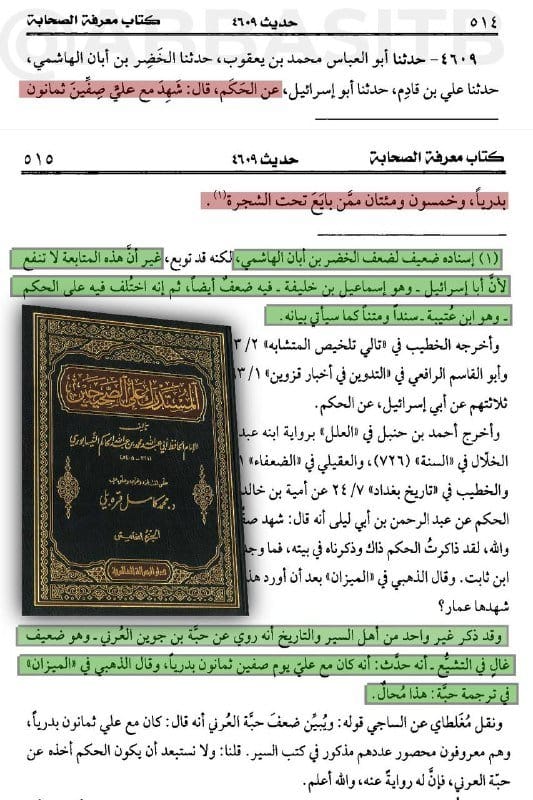 @ABBASITB
٥١٤ حديث ٤٦٠٩ كتاب معرفة الصحابة
٤٦٠٩- حدثنا أبو العباس محمد بن يعقوب، حدثنا الخَضِر بن أبان الهاشمي،
حدثنا علي بن قادِم، حدثنا أبو إسرائيل، عن الحَكَم، قال: شَهِدَ مع عليٍّ صِفِّينَ ثمانون
كتاب معرفة الصحابة حديث ٤٦٠٩ ٥١٥
بدرياً، وخمسون ومئتان ممَّن بايَعَ تحت الشجرة(١).
(١) إسناده ضعيف لضعف الخضر بن أبان الهاشمي، لكنه قد توبع، غير أنَّ هذه المتابعة لا تنفع
لأنَّ أبا إسرائيل ـ وهو إسماعيل بن خليفة ـ فيه ضعفٌ أيضاً، ثم إنه اختُلف فيه على الحكم
ـ وهو ابن عُتيبة ـ سنداً ومتناً كما سيأتي بيانه.
وأخرجه الخطيب في «تالي تلخيص المتشابه» ٢/
وأبو القاسم الرافعي في «التدوين في أخبار قزوين» ١/
ثلاثتهم عن أبي إسرائيل، عن الحكم.
وأخرج أحمد بن حنبل في «العلل» برواية ابنه عبد
الخلّال في «السنة» (٧٢٦)، والعقيلي في «الضعفاء» ١
والخطيب في «تاريخ بغداد» ٧/ ٢٤ عن أمية بن خالد
الحكم عن عبد الرحمن بن أبي ليلى أنه قال: شهد صف
والله، لقد ذاكرتُ الحكم ذاك وذكرناه في بيته، فما وجد
ابن ثابت. وقال الذهبي في «الميزان» بعد أن أورد هذ
شهدها عمار؟
المستدرك على الصحيحين
تأليف
د. محمد كامل قره بلي
وقد ذكر غير واحد من أهل السير والتاريخ أنه روي عن حبَّة بن جوين العُرني ـ وهو ضعيف
غالٍ في التشيُّع ـ أنه حدَّث: أنه كان مع عليّ يوم صفين ثمانون بدرياً، وقال الذهبي في «الميزان»
في ترجمة حبَّة: هذا مُحالٌ.
ونقل مُغَلطاي عن الساجي قوله: ويُبيِّن ضعفَ حبَّة العُرني أنه قال: كان مع علي ثمانون بدرياً،
وهم معروفون محصور عددهم مذكور في كتب السير. قلنا: ولا نستبعد أن يكون الحكم أخذه عن
حبّة العرني، فإنَّ له روايةً عنه، والله أعلم.